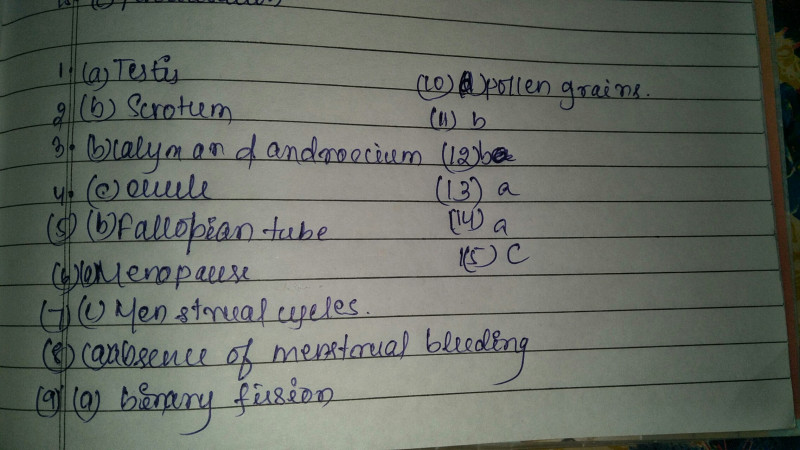 1. (a) Testis
2. (b) Scrotum
3. (b) calyx and androecium
4. (c) ovule
(5) (b) Fallopian tube
(6) (c) Menopause
(7) (c) Menstrual cycles.
(8) (a) absence of menstrual bleeding
(9) (a) binary fission
(10) (a) pollen grains.
(11) b
(12) b
(13) a
(14) a
(15) C